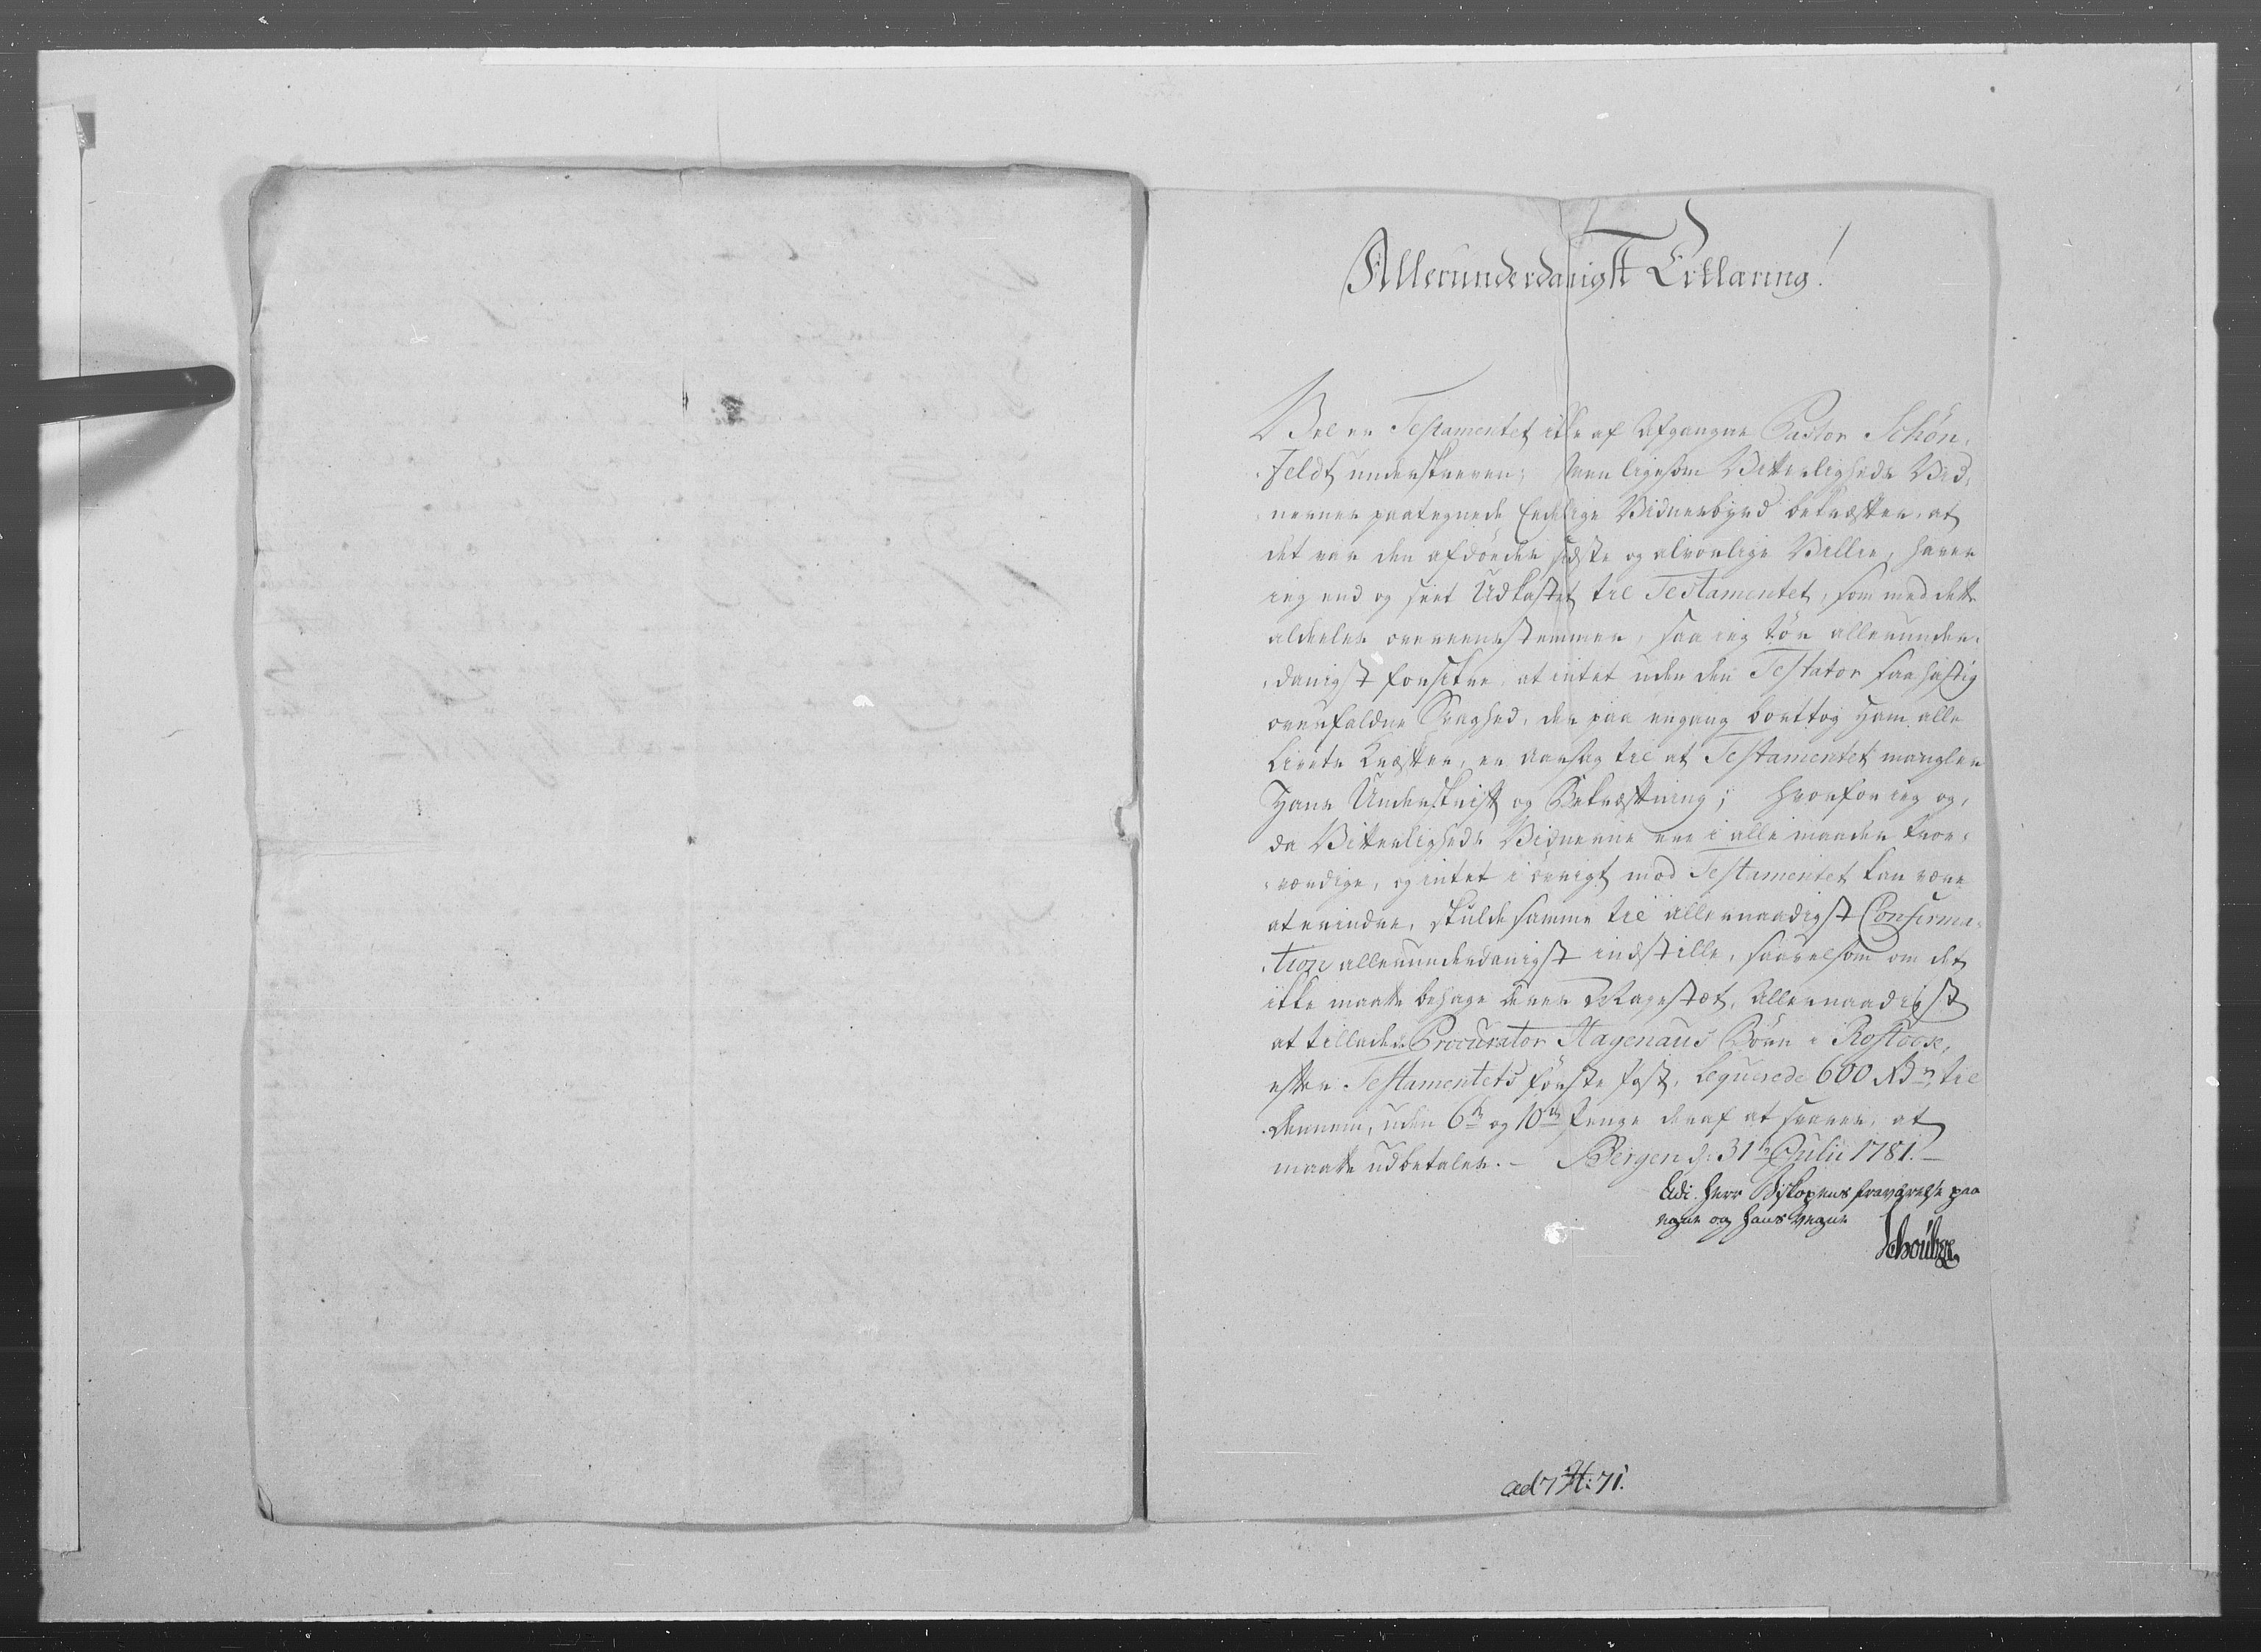 Allerunderdanigst Erklæring!
Vel er Testamentet ikke af Afgangne Pastor Schön-
feldt underskreven; men ligesom Vitterligheds Vid-
nernes paategnede Eedelige Vidnesbyrd bekræfter, at
det var den afdödes sidste og alvorlige Villie, haver
ieg end og seet Udkastet til Testamentet, som med dette
aldeeles overeenstemmer, saa ieg tör allerunder-
danigst forsikre, at intet uden den Testator saa hastig
overfaldne Svaghed, der paa engang borttog Ham alle
Livets Kræfter, er Aarsag til at Testamentet mangler
Hans Underskrift og Bekræftning; hvorfor ieg og,
da Vitterligheds Vidnerne ere i alle maader troe-
værdige, og intet i övrigt mod Testamentet kan være
at erindre, skulde samme til allernaadigst Confirma-
tion allerunderdanigst indstille, saavelsom om det
ikke maatte behage Deres Majestæt, Allernaadigst
at tillade Procurator Hagenaus Börn i Rostock,
efter Testamentets förste Post, legerede 600 Rdr, til
dennem, uden 6te og 10de Penge deraf at svares, at
maatte udbetales. - Bergen d: 31te Julii 1781. -
Udi Herr Biskopens fraværelse paa
egne og hans vegne
ad 7 H: 71.